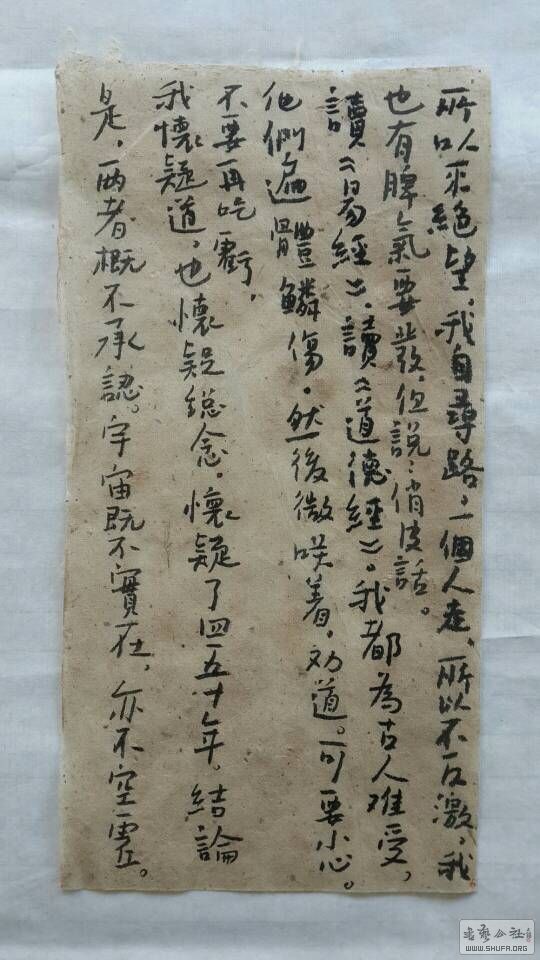 所以不絕望，我自尋路，一個人走，所以不反激，我
也有脾氣要發，但說：俏皮話。
讀《易經》，讀《道德經》。我都為古人難受，
他們遍體鱗傷。然後微咲着，劝道。可要小心。
不要再吃虧，
我懷疑道，也懷疑總念。懷疑了四五十年，結論
是，两者概不承認。宇宙既不實在，亦不空靈。
書藝公社
WWW.SHUFA.ORG